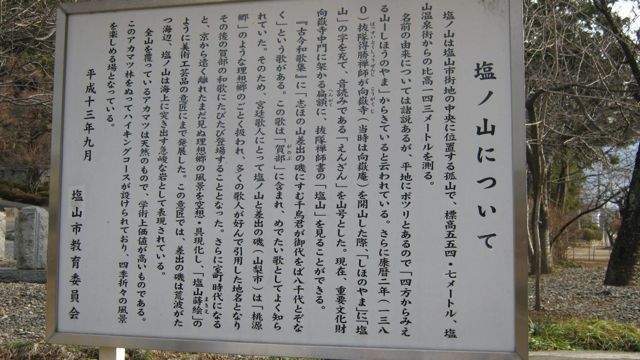 塩ノ山について
塩ノ山は塩山市街地の中央に位置する孤山で、標高五五四・七メートル、塩
山温泉街からの比高一四三メートルを測る。
名前の由来については諸説あるが、平地にポツリとあるので「四方からみえ
る山ーしほうのやま」からきていると云われている。さらに康暦二年(一三八
〇)抜隊得勝禅師が向嶽寺(当時は向嶽庵)を開山した際、「しほのやま」に「塩
山」の字を充て、音読みである「えんざん」を山号とした。現在、重要文化財
向嶽寺中門に架かる扁額に、抜隊禅師書の「塩山」を見ることができる。
『古今和歌集』に「志ほの山差出の磯にすむ千鳥君が御代をば八千代とぞな
く」という歌がある。この歌は「賀部」に含まれ、めでたい歌としてよく知ら
れていた。そのため、宮廷歌人にとって塩ノ山と差出の磯(山梨市)は「桃源
郷」のような理想郷のごとく扱われ、多くの歌人が好んで引用した地名となり
その後の賀部の和歌にたびたび登場することとなった。さらに室町時代になる
と、京から遠く離れたまだ見ぬ理想郷の風景を空想・具現化し、「塩山蒔絵」の
ように美術工芸品の意匠にまで発展した。この意匠では、差出の磯は荒波がた
つ海辺、塩ノ山は海上に突き出す急峻な岩として表現されている。
全山を覆っているアカマツは天然のもので、学術上価値が高いものである。
このアカマツ林をぬってハイキングコースが設けられており、四季折々の風景
を楽しめる場となっている。
平成十三年九月
塩山市教育委員会